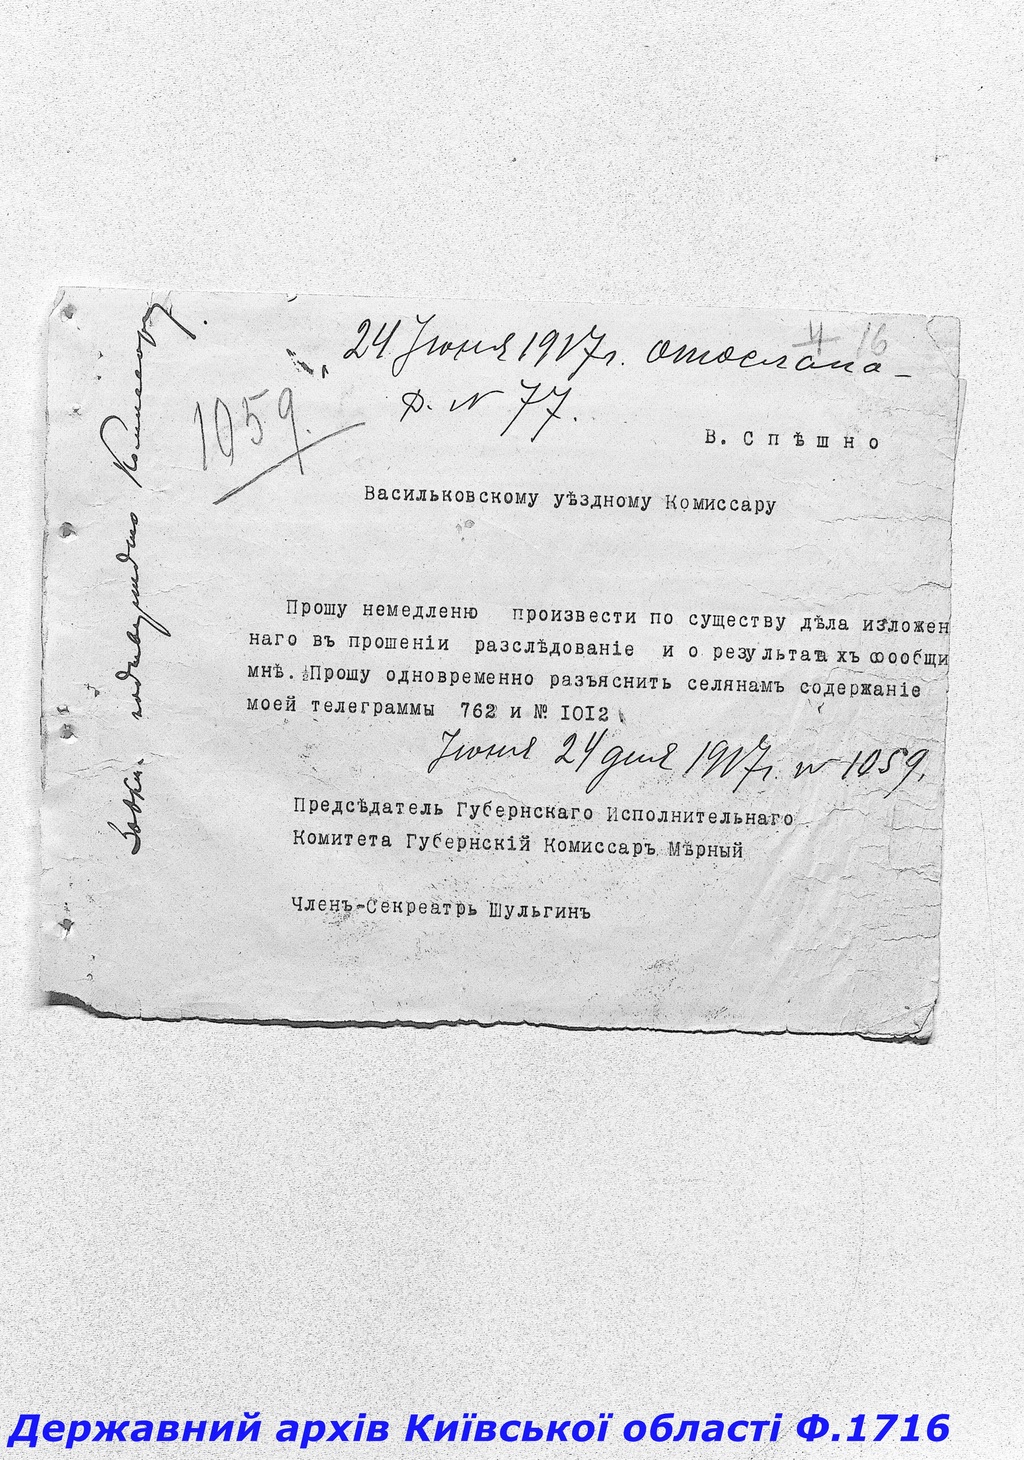 24 Июня 1917 г. отослана
Д. N 77.
4 16
1059
В. Спѣшно
Васильковскому уѣздному Комиссару
Прошу немедленю произвести по существу дѣла изложен
наго въ прошеніи разслѣдованіе и о результата хъ сообщи
мнѣ. Прошу одновременно разъяснить селянамъ содержаніе
моей телеграммы 762 и № 1012
Июня 24 дня 1917 г. N 1059.
Предсѣдатель Губернскаго Исполнительнаго
Комитета Губернскій Комиссаръ Мѣрный
Членъ-Секреатрь Шульгинъ
Комиссару.
Державний архів Київської області Ф.1716